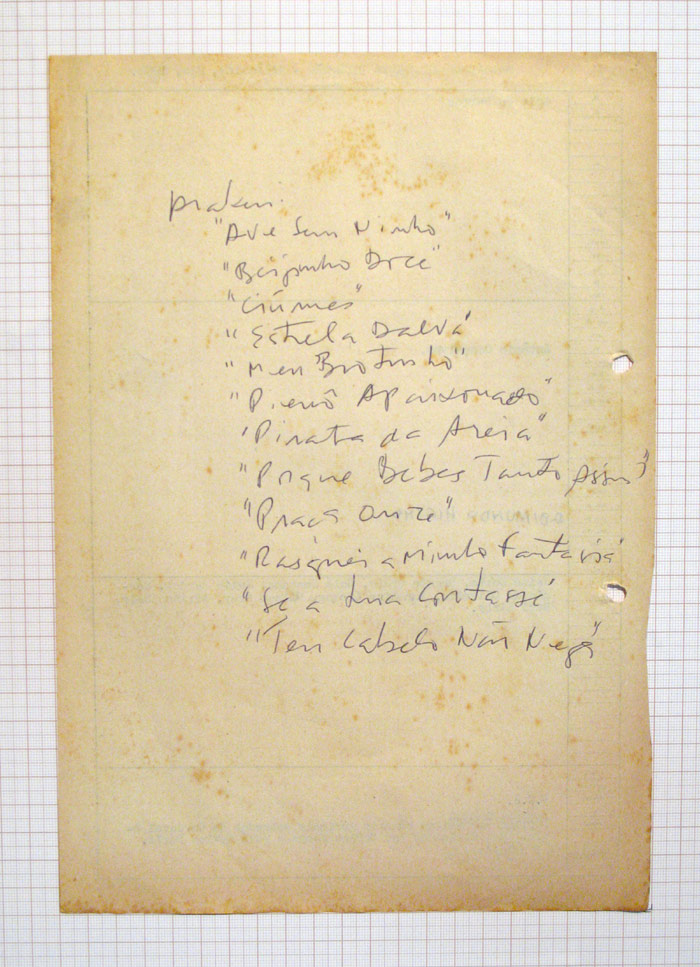 "Ave Sem Ninho"
"Beijinho Doce"
"Ciúmes"
"Estrela Dalvá
"Meu Brotinho"
"Pierrô Apaixonado"
'Pirata da Areia"
"Porque Bebes Tanto Assim"
"Praça Onze"
"Rasguei a Minha Fantasiá
"Se a Lua Contassé
"Teu Cabelo Não Nega"